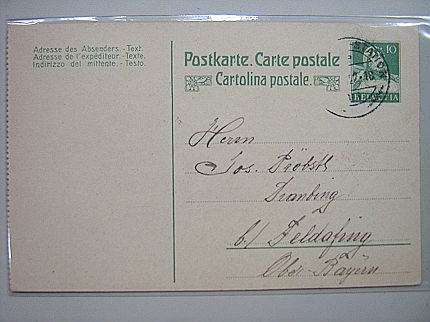 Adresse des Absenders.-Text.
Adresse de l'expéditeur.-Texte.
Indirizzo del mittente.-Testo.
Postkarte. Carte postale
Cartolina postale.
10
HELVETIA
Herrn
Jos. Pröbstl
Traubing
b/ Feldafing
Ober-Bayern